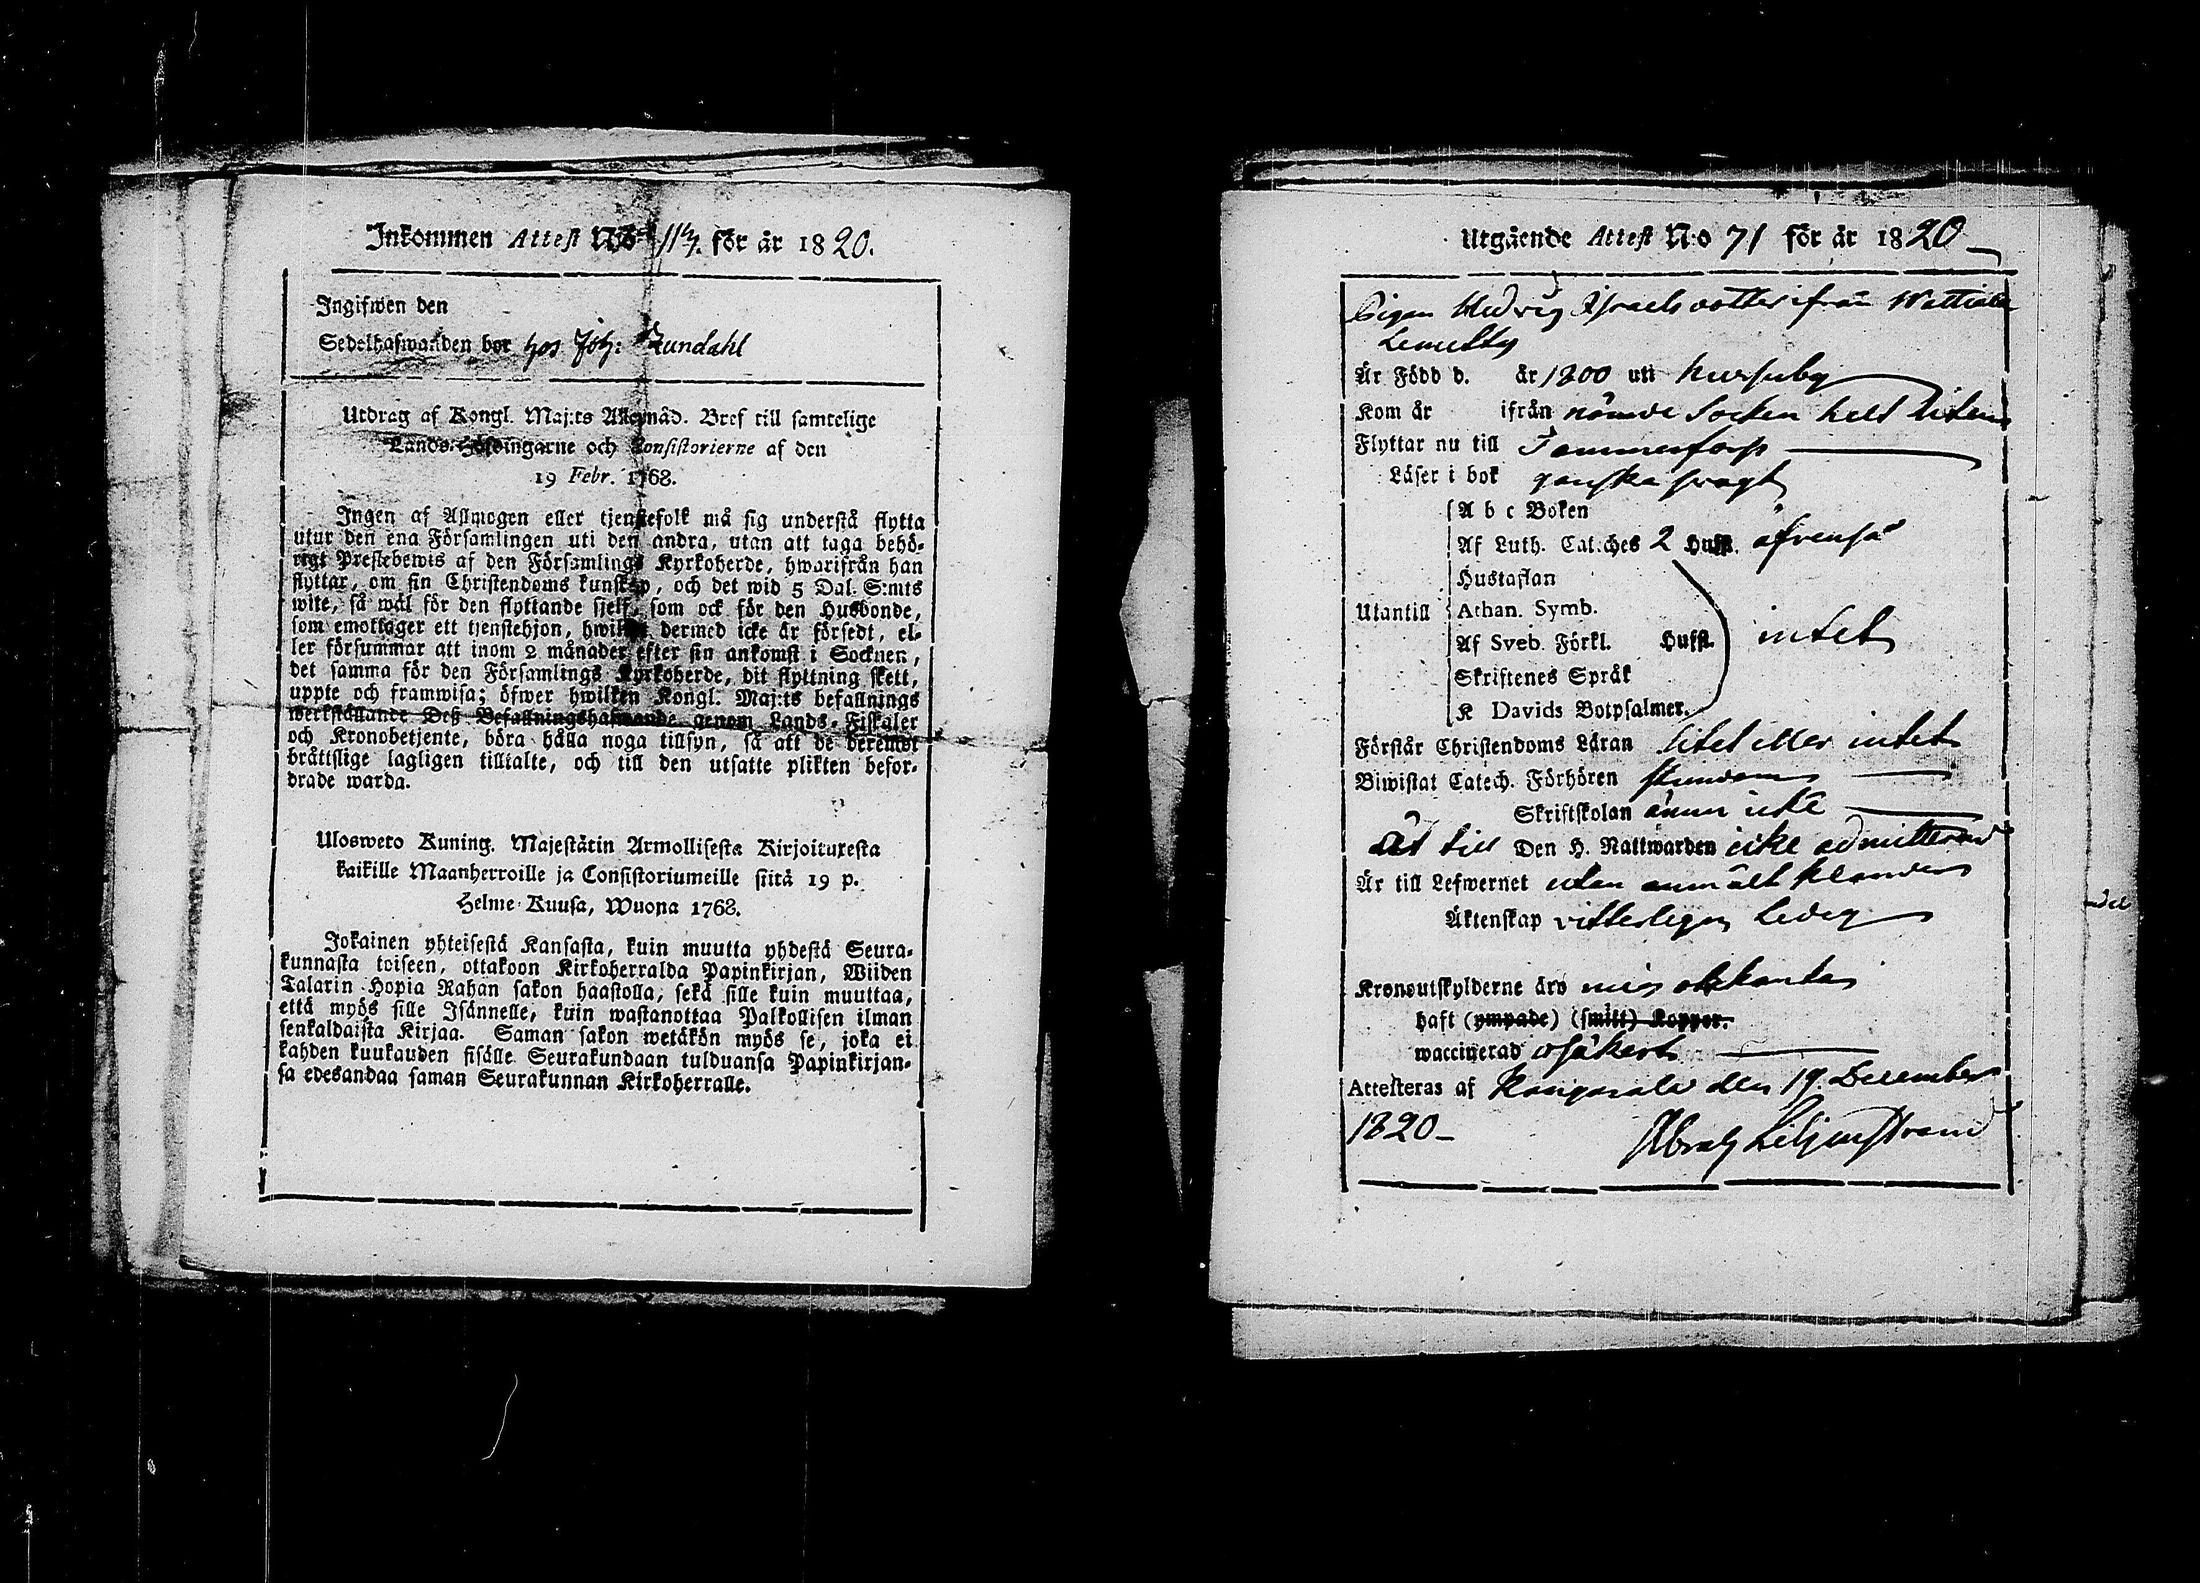 Inkommen Attest N:o 117. för år 1820.
Ingifwen den
Sedelhafwanden bor hos Joh: Sundahl
Utdrag af Kongl. Maj:ts Allernåd. Bref till samtelige
Lands-Höfdingarne och Consistorierne af den
19 Febr. 1768.
Ingen af Allmogen eller tjenstefolk må sig understå flytta
utur den ena Församlingen uti den andra, utan att taga behö-
rigt Prestebewis af den Församlings Kyrkoherde, hwarifrån han
flyttar, om sin Christendoms kunskap, och det wid 5 Dal. S:mts
wite, så wäl för den flyttande sjelf, som ock för den Husbonde,
som emottager ett tjenstehjon, hwilken dermed icke är försedt, el-
ler försummar att inom 2 månader efter sin ankomst i Socknen,
det samma för den Församlings Kyrkoherde, dit flyttning skett,
uppte och framwisa; öfwer hwilken Kongl. Maj:ts befallnings
werkställande Deß Befallningshafwande genom Lands-Fiskaler
och Kronobetjente, böra hålla noga tillsyn, så att de deremot
bråttslige lagligen tilltalte, och till den utsatte plikten befor-
drade warda.
Ulosweto Kuning. Majestätin Armollisesta Kirjoituxesta
kaikille Maanherroille ja Consistoriumeille siitä 19 p.
Helme-Kuusa, Wuona 1768.
Jokainen yhteisestä Kansasta, kuin muutta yhdestä Seura-
kunnasta toiseen, ottakoon Kirkoherralda Papinkirjan, Wiiden
Talarin Hopia Rahan sakon haastolla, sekä sille kuin muuttaa,
että myös sille Isännelle, kuin wastanottaa Palkollisen ilman
senkaldaista Kirjaa. Saman sakon wetäkön myös se, joka ei
kahden kuukauden sisälle Seurakundaan tulduansa Papinkirjan-
sa edesandaa saman Seurakunnan Kirkoherralle.
Utgående Attest N:o 71 för år 1820
Pigan Hedvig Israels dotter ifrån Wattiala
Lemetty
Är Född d. år 1800 uti Kurssuby
Kom år ifrån nämde Socken helt liten
Flyttar nu till Tammerfors
Läser i bok ganska svagt
A b c Boken
Af Luth. Catches 2 Hufst. äfvenså
Hustaflan
Utantill Athan. Symb.
Af Sveb. Förkl. Hufst. intet
Skriftenes Språk
K Davids Botpsalmer.
Förstår Christendoms Läran litet eller intet
Biwistat Catech. Förhören stundom
Skriftskolan ännu icke
Är till Den H. Nattwarden icke admitterad
Är till Lefwernet utan anmält klander
Äktenskap vitterligen ledig
Kronoutskylderne äro mig obekanta
haft (ympade) (smitt) Koppor.
waccinerad osäkert
Attesteras af Kangasala den 19 December
1820 Abrah Liljenstrand